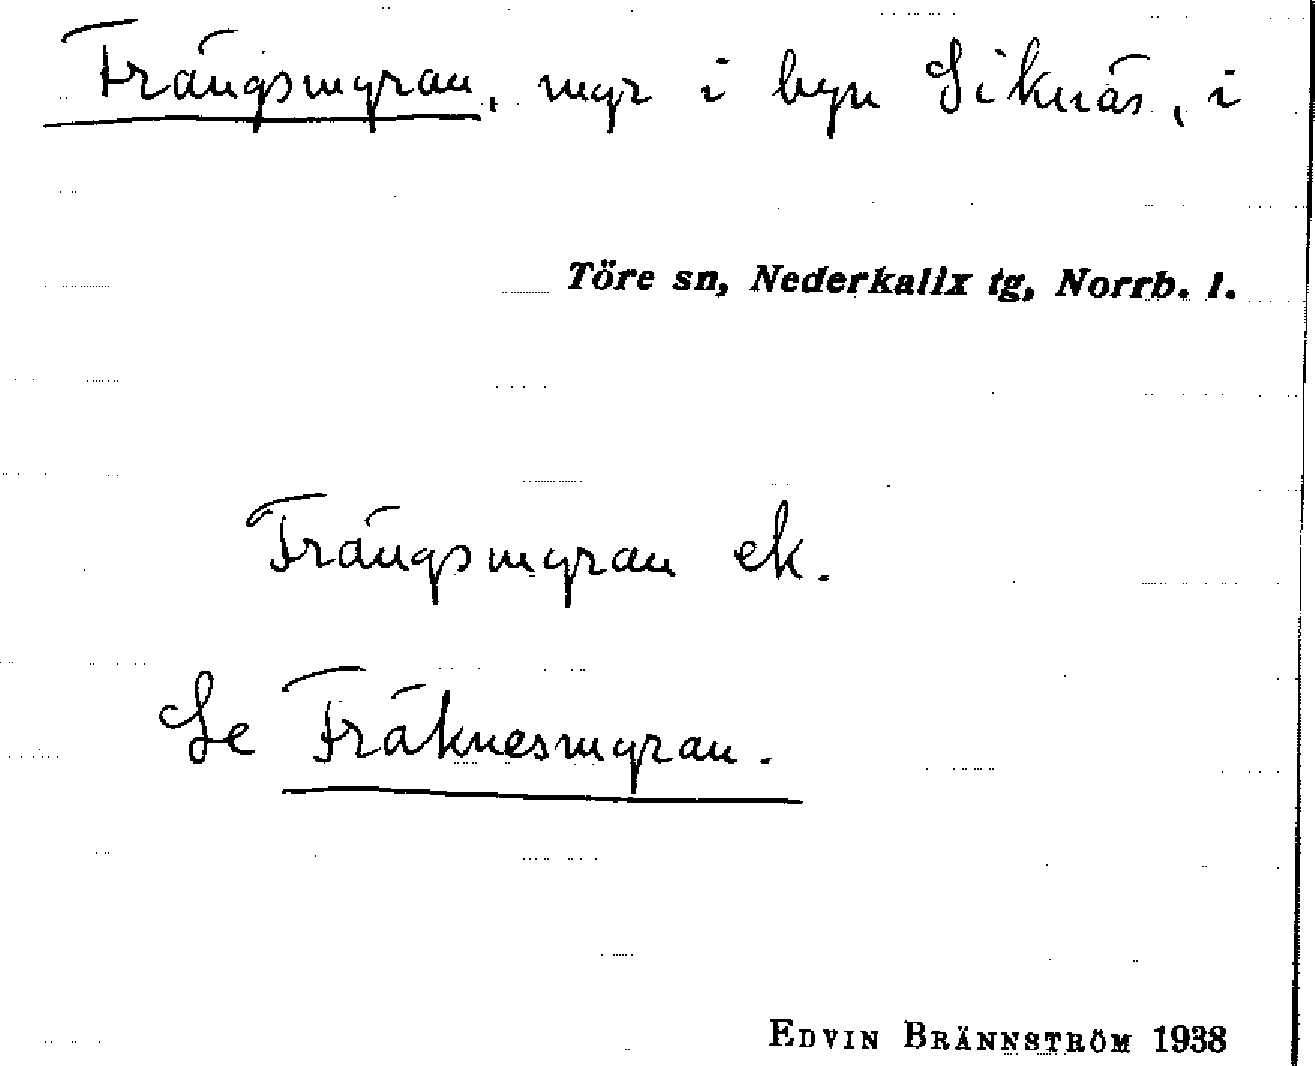 Frängsmyran, myr i byn Siknäs, i
Töre sn, Nederkalix tg, Norrb. l.
Frängsmyran ek.
Se Fräknesmyran.
EDVIN BRÄNNSTRÖM 1938